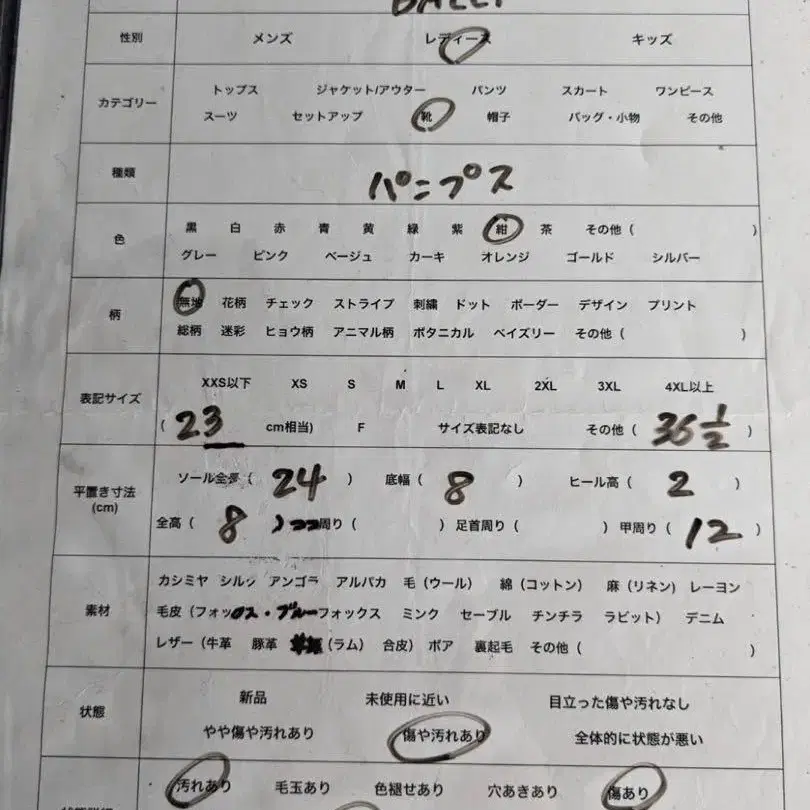 BALLY
性別 メンズ レディース キッズ
トップス ジャケット/アウター パンツ スカート ワンピース
カテゴリー
スーツ セットアップ 靴 帽子 バッグ・小物 その他
種類 パンプス
黒 白 赤 青 黄 緑 紫 紺 茶 その他 ( )
色
グレー ピンク ベージュ カーキ オレンジ ゴールド シルバー
無地 花柄 チェック ストライプ 刺繍 ドット ボーダー デザイン プリント
柄
総柄 迷彩 ヒョウ柄 アニマル柄 ボタニカル ペイズリー その他 ( )
XXS以下 XS S M L XL 2XL 3XL 4XL以上
表記サイズ
( 23 cm相当) F サイズ表記なし その他 ( 36 1/2 )
ソール全長 ( 24 ) 底幅 ( 8 ) ヒール高 ( 2 )
平置き寸法
(cm)
全高 ( 8 ) 周り ( ) 足首周り ( ) 甲周り ( 12 )
カシミヤ シルク アンゴラ アルパカ 毛 (ウール) 綿 (コットン) 麻 (リネン) レーヨン
素材
毛皮 (フォックス・ブルーフォックス ミンク セーブル チンチラ ラビット) デニム
レザー (牛革 豚革 (ラム) 合皮) ボア 裏起毛 その他 ( )
新品 未使用に近い 目立った傷や汚れなし
状態
やや傷や汚れあり 傷や汚れあり 全体的に状態が悪い
汚れあり 毛玉あり 色褪せあり 穴あきあり 傷あり